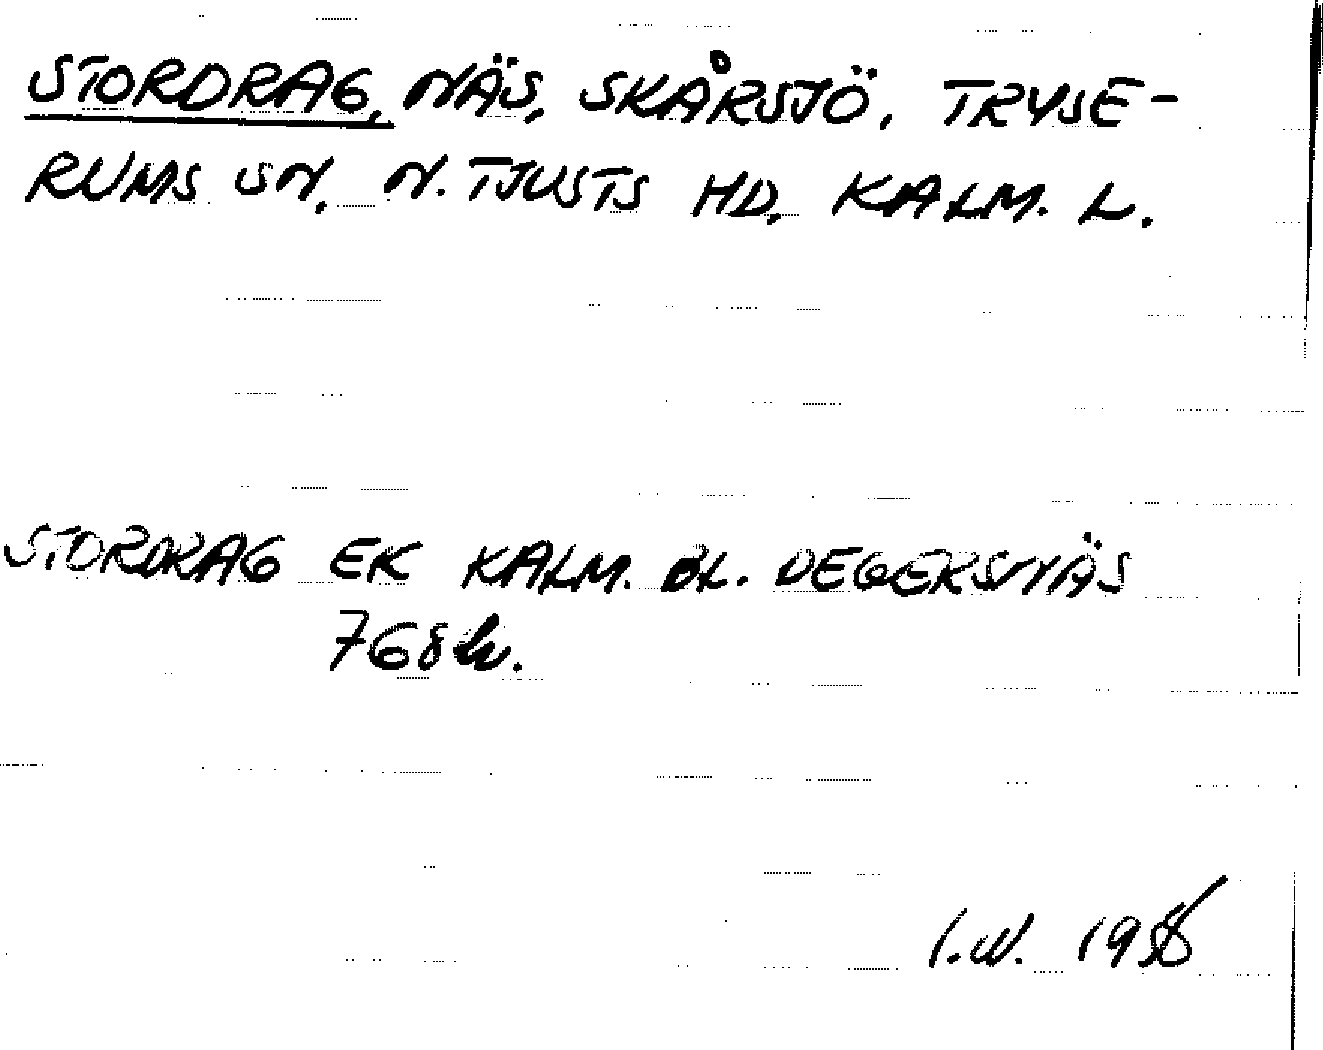 STORDRAG, NÄS, SKÅRSJÖ, TRYSE-
RUMS SN, N. TJUSTS HD, KALM. L.
STORDRAG EK KALM. BL. DEGERSNÄS
768
I.W. 195